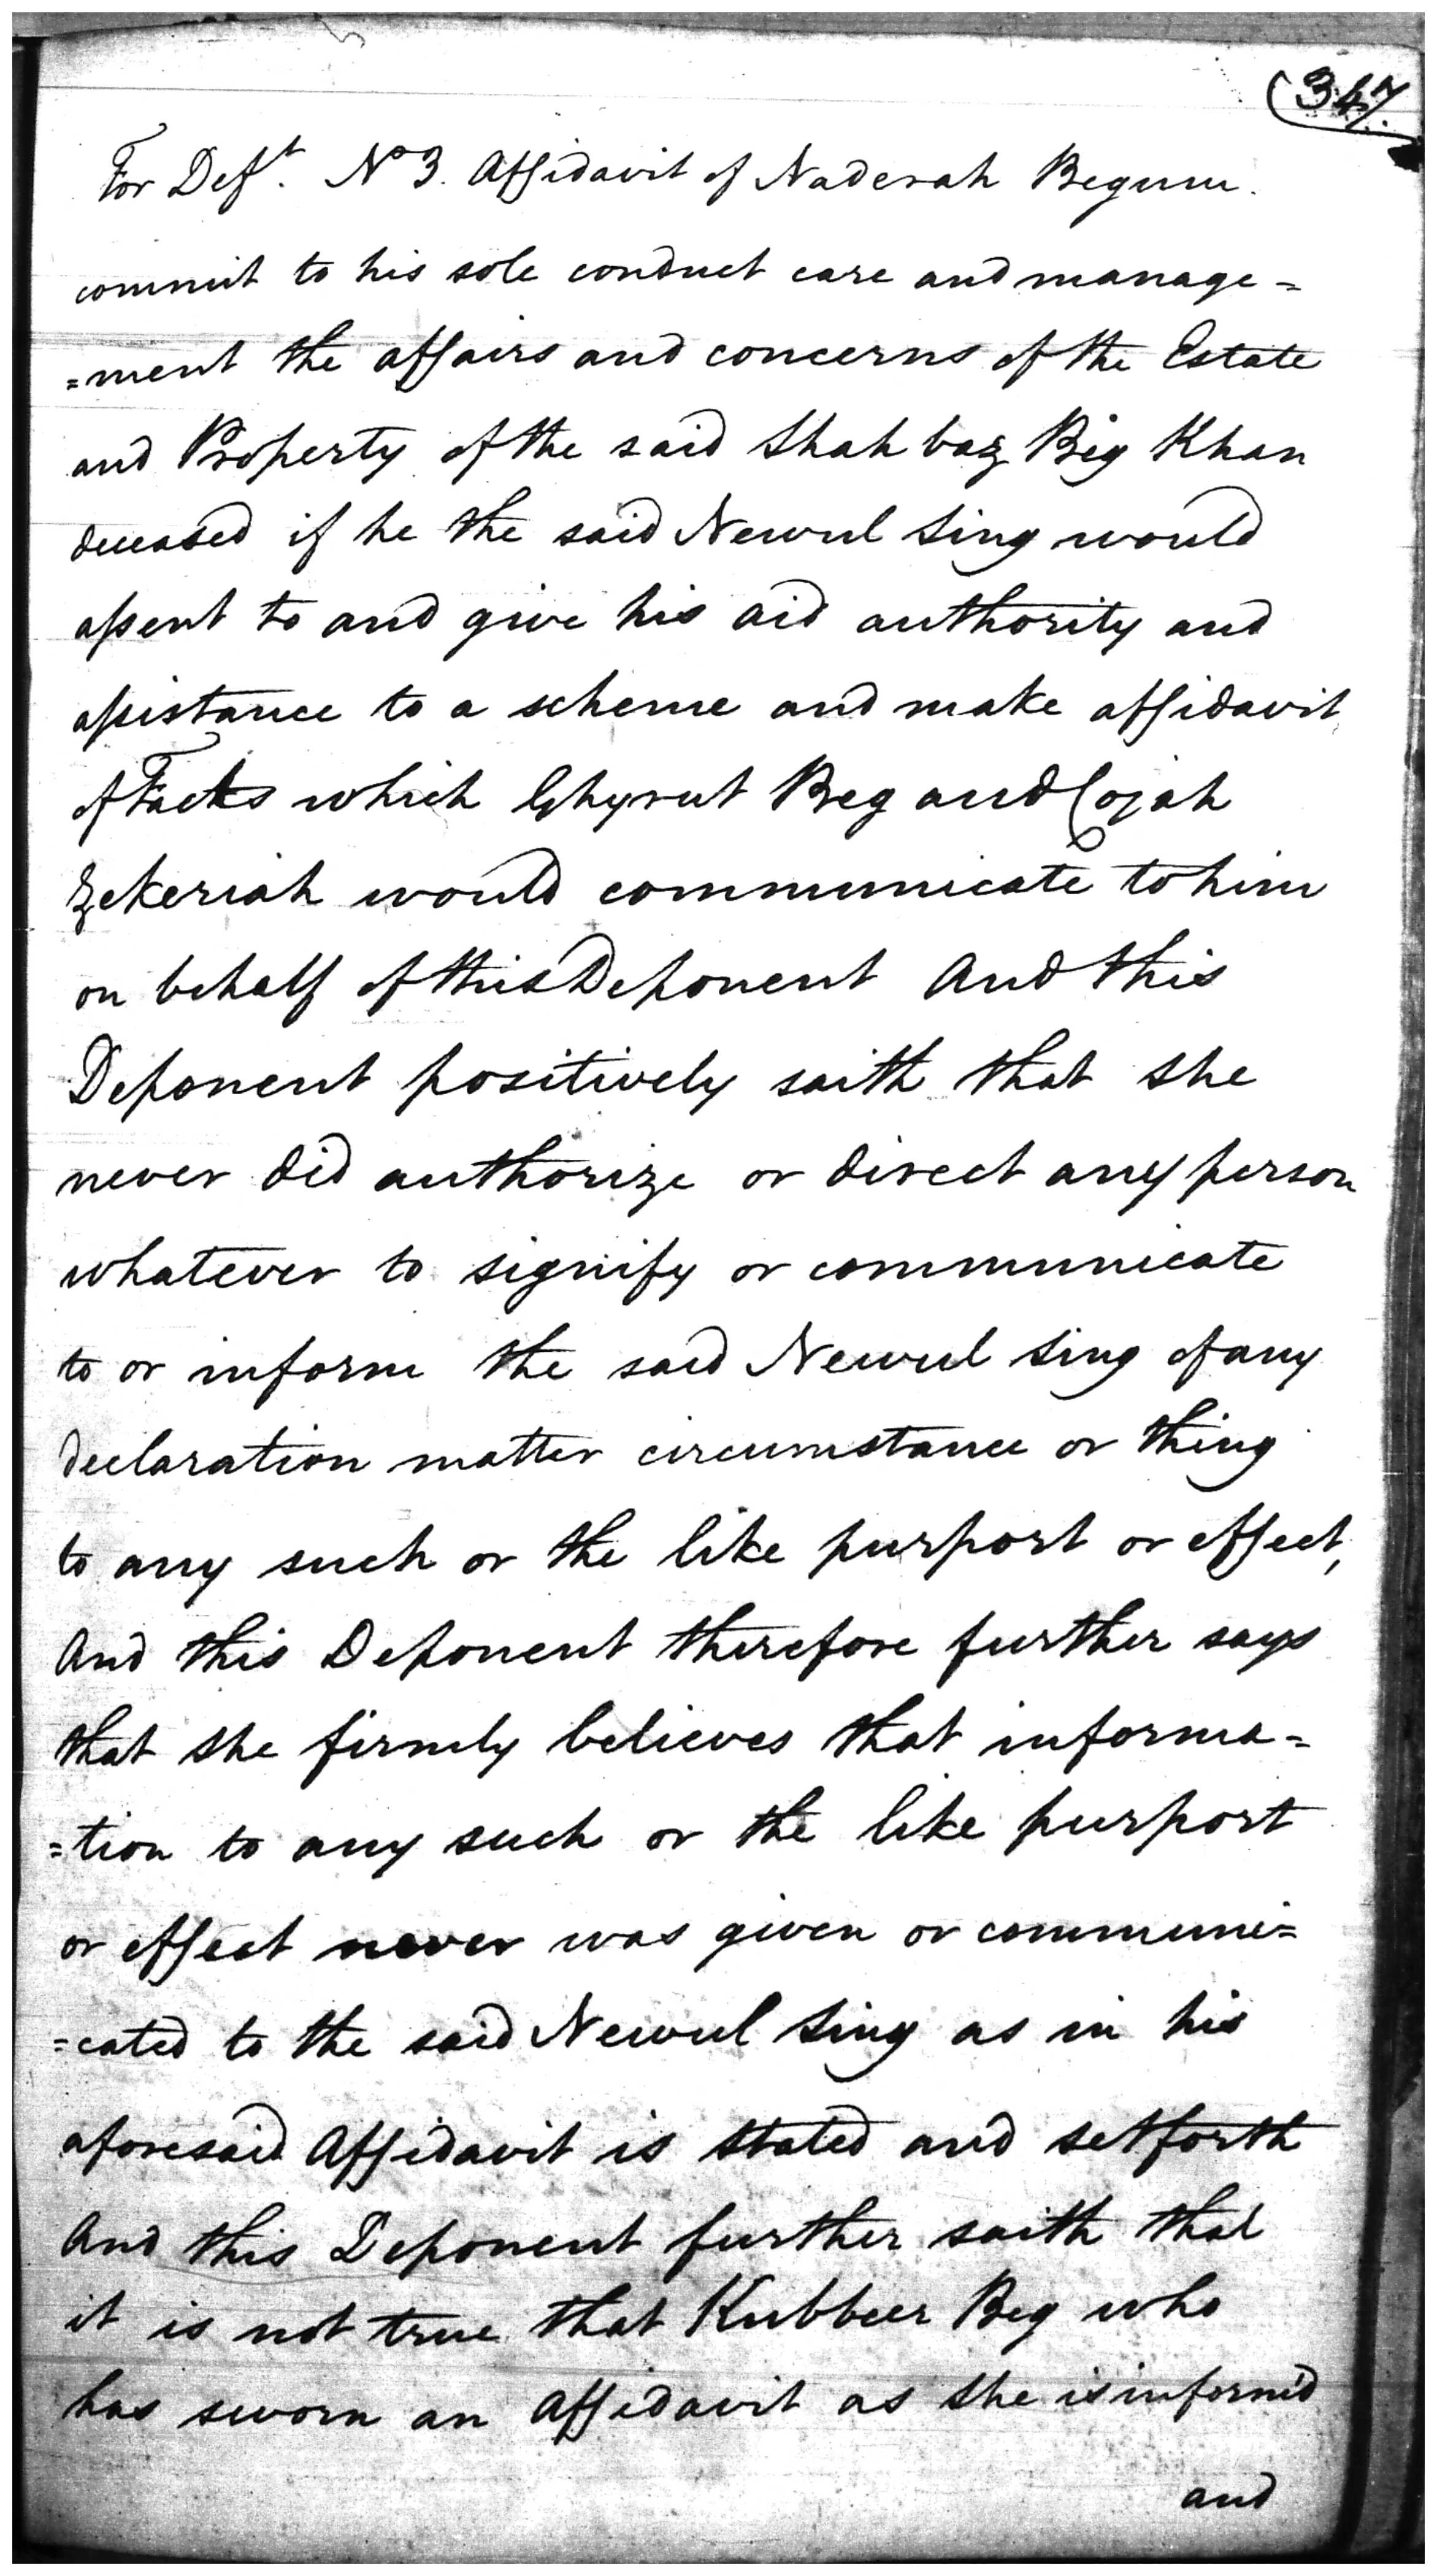 (347
For Deft. No 3. Affidavit of Naderah Begum.
commit to his sole conduct care and manage=
=ment the affairs and concerns of the Estate
and Property of the said Shah baz Beg Khan
deceased if he the said Newul Sing would
assent to and give his aid authority and
assistance to a scheme and make affidavit
of Facts which Ghyrut Beg and Cojah
Zekeriah would communicate to him
on behalf of this Deponent And this
Deponent positively saith that she
never did authorize or direct any person
whatever to signify or communicate
to or inform the said Newul Sing of any
declaration matter circumstance or thing
to any such or the like purport or effect,
And this Deponent therefore further says
that she firmly believes that informa=
=tion to any such or the like purport
or effect never was given or communi=
=cated to the said Newul Sing as in his
aforesaid Affidavit is stated and setforth
And this Deponent further saith that
it is not true that Kubbeer Beg who
has sworn an Affidavit as she is inform'd
and